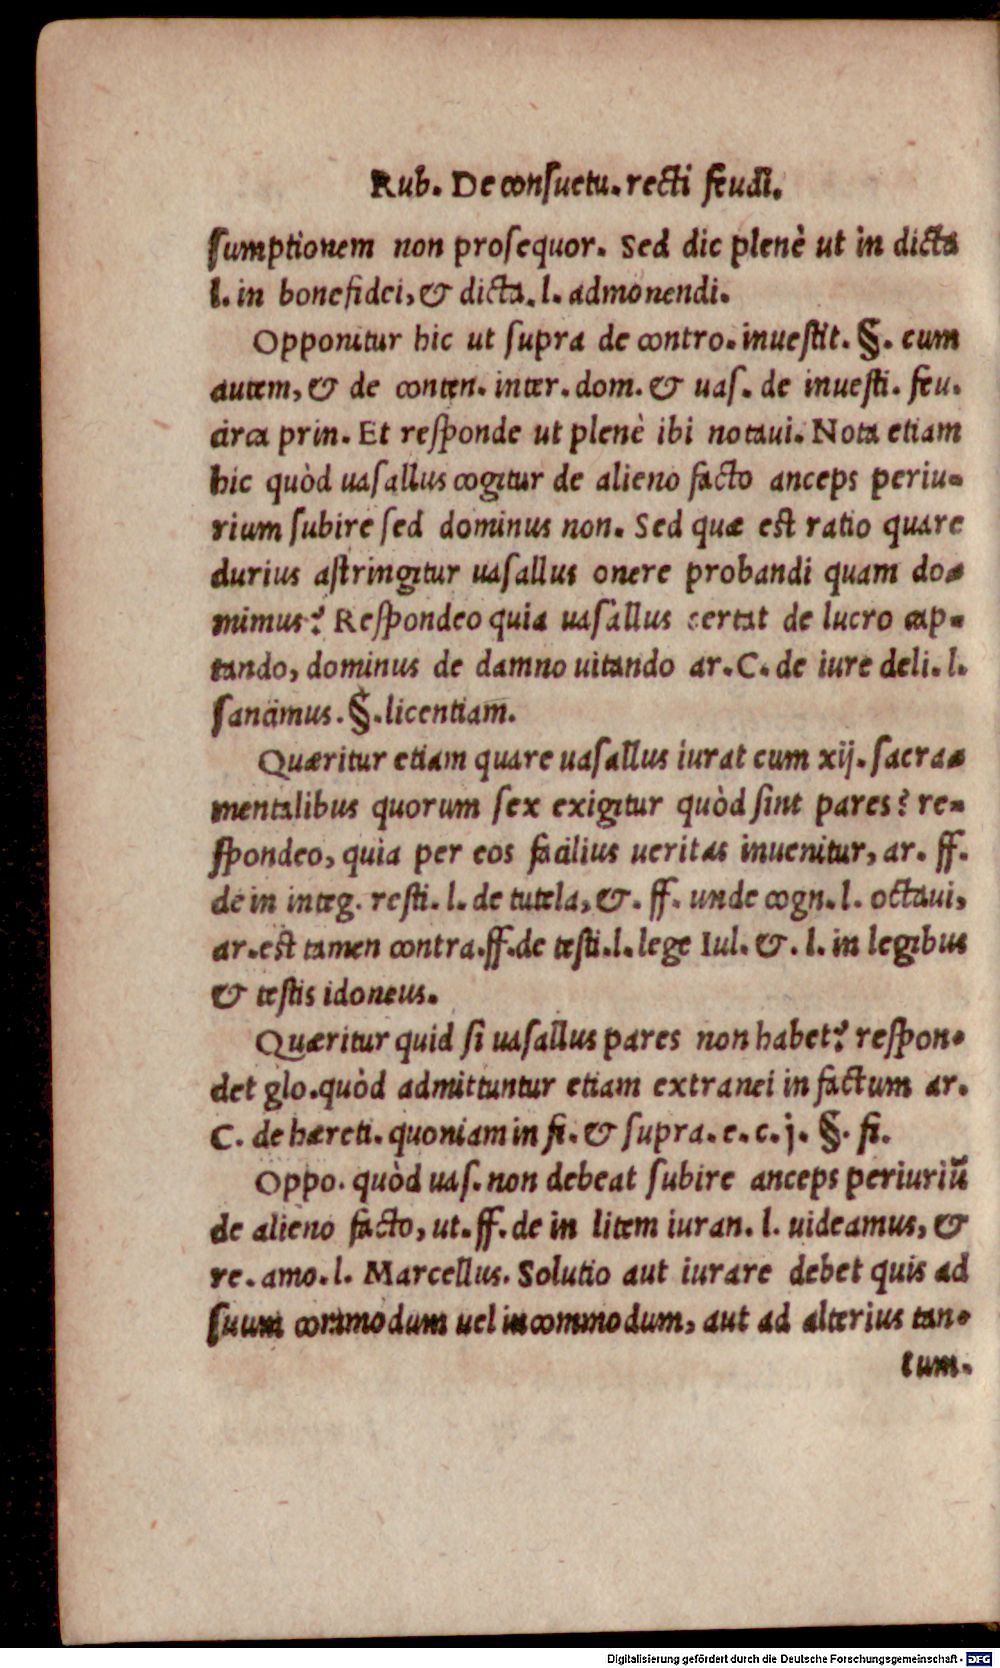 Rub. De consuetu. recti feudi.
sumptionem non prosequor. Sed dic plenè ut in dicta
l. in bonefidei, & dicta. l. admonendi.
Opponitur hic ut supra de contro. inuestit. §. cum
autem, & de conten. inter. dom. & uas. de inuesti. feu.
circa prin. Et responde ut plenè ibi notaui. Nota etiam
hic quòd uasallus cogitur de alieno facto anceps periu-
rium subire sed dominus non. Sed quæ est ratio quare
durius astringitur uasallus onere probandi quam do-
mimus? Respondeo quia uasallus certat de lucro cap-
tando, dominus de damno uitando ar. C. de iure deli. l.
sancimus. §. licentiam.
Quæritur etiam quare uasallus iurat cum xij. sacra-
mentalibus quorum sex exigitur quòd sint pares? re-
spondeo, quia per eos facilius ueritas inuenitur, ar. ff.
de in integ. resti. l. de tutela, &. ff. unde cogn. l. octaui,
ar. est tamen contra. ff. de testi. l. lege Iul. &. l. in legibus
& testis idoneus.
Quæritur quid si uasallus pares non habet? respon-
det glo. quòd admittuntur etiam extranei in factum ar.
C. de hæreti. quoniam in fi. & supra. e. c. j. §. fi.
Oppo. quòd uas. non debeat subire anceps periuriū
de alieno facto, ut. ff. de in litem iuran. l. uideamus, &
re. amo. l. Marcellus. Solutio aut iurare debet quis ad
suum commodum uel incommodum, aut ad alterius tan-
tum.
Digitalisierung gefördert durch die Deutsche Forschungsgemeinschaft - DFG